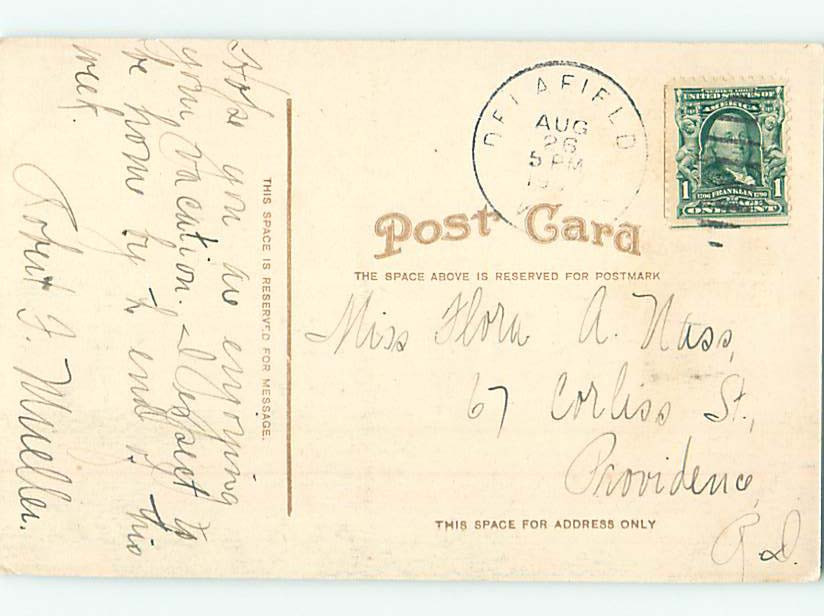 Hope you are enjoying
your vacation. I expect to
be home by t end of this
week.
Robert F. Mueller.
THIS SPACE IS RESERVED FOR MESSAGE.
DELAFIELD
AUG
26
5 PM
SERIES 1902
UNITED STATES OF
AMERICA
1 1706 FRANKLIN 1790 1
ONE CENT
Post Card
THE SPACE ABOVE IS RESERVED FOR POSTMARK
Miss Flora A. Nass,
67 Corliss St.,
Providence,
R.I.
THIS SPACE FOR ADDRESS ONLY